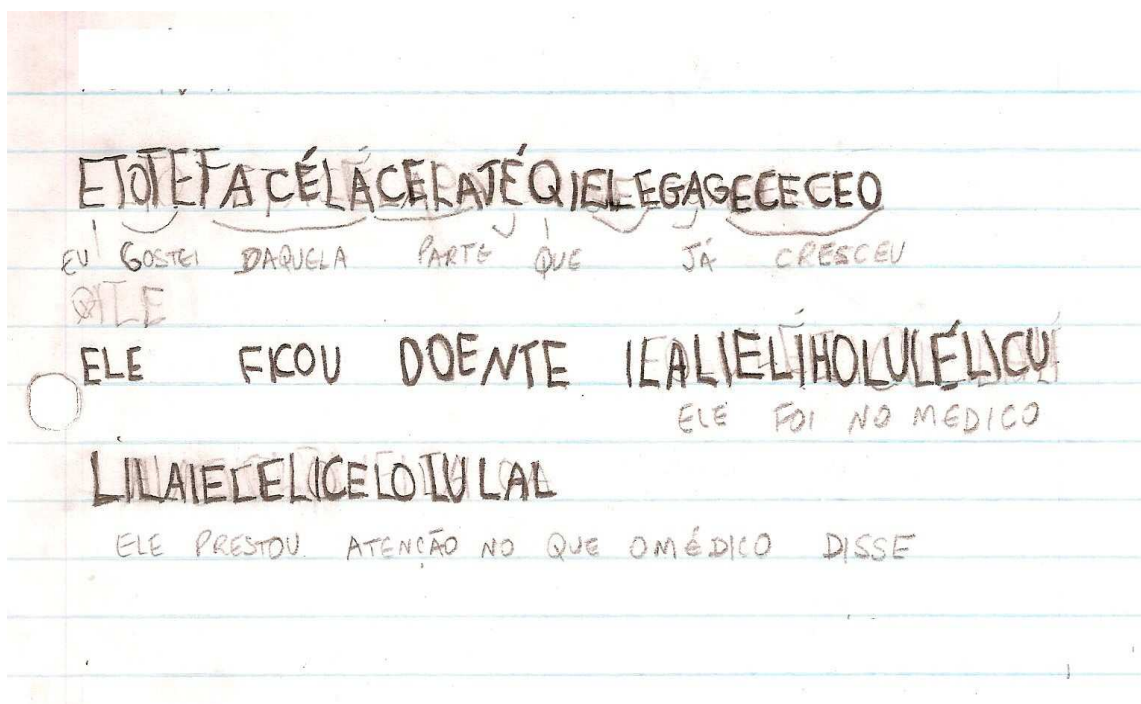 ETOTEFACÉLÁCERATÉQIELEGAGECECEO
EU GOSTEI DAQUELA PARTE QUE JÁ CRESCEU
QILE
ELE FICOU DOENTE IEALIELIHOLULÉLICU
ELE FOI NO MEDICO
LILAIECELICELOIULAL
ELE PRESTOU ATENÇÃO NO QUE OMÉDICO DISSE